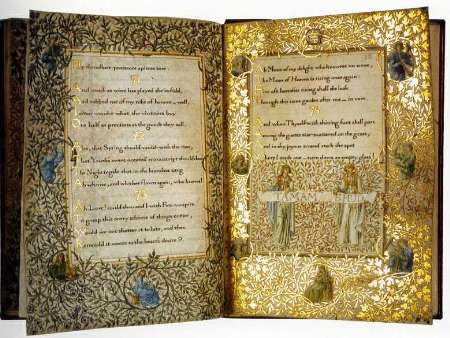 My threadbare penitence apieces tore.
And much as wine has played the infidel,
And robbed me of my robe of honour — well,
I often wonder what the vintners buy
One half so precious as the goods they sell.
Alas, that Spring should vanish with the rose,
That Youth's sweet-scented manuscript should close
The Nightingale that in the branches sang,
Ah whence, and whither flown again, who knows!
Ah Love! could thou and I with Fate conspire
To grasp this sorry scheme of things entire,
Would not we shatter it to bits, and then
Remould it nearer to the heart's desire?
Ah Moon of my delight who knowest no wane,
The Moon of Heaven is rising once again:
How oft hereafter rising shall she look
Through this same garden after me — in vain.
And when Thyself with shining foot shall pass
Among the guests star-scattered on the grass,
And in thy joyous errand reach the spot
Where I made one — turn down an empty glass!
TAMAM SHUD